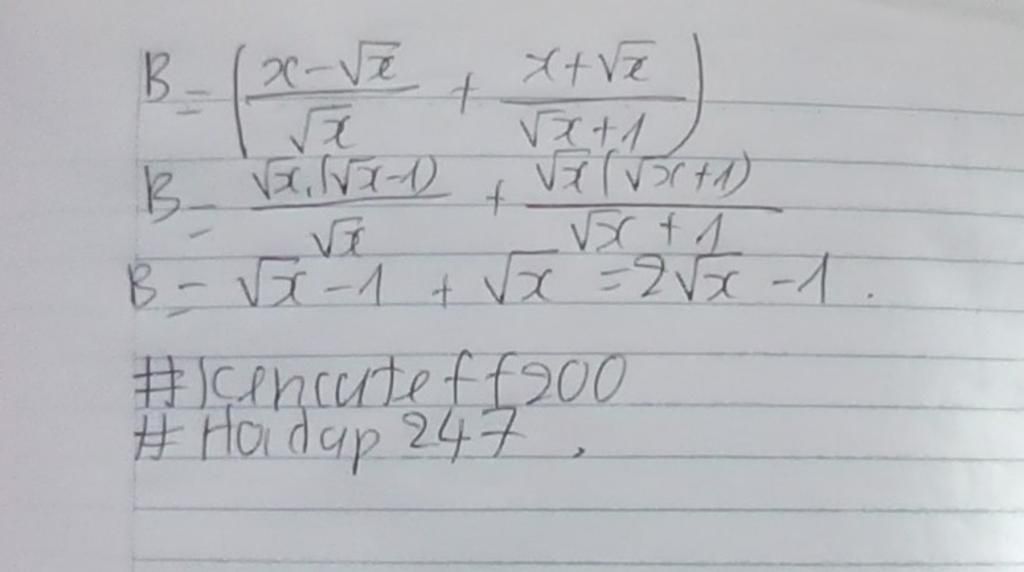 B = ( (x - √x)/√x + (x + √x)/(√x + 1) )
B = √x.(√x - 1)/√x + √x(√x + 1)/(√x + 1)
B = √x - 1 + √x = 2√x - 1.
#Kencuteff200
#Hoidap247.